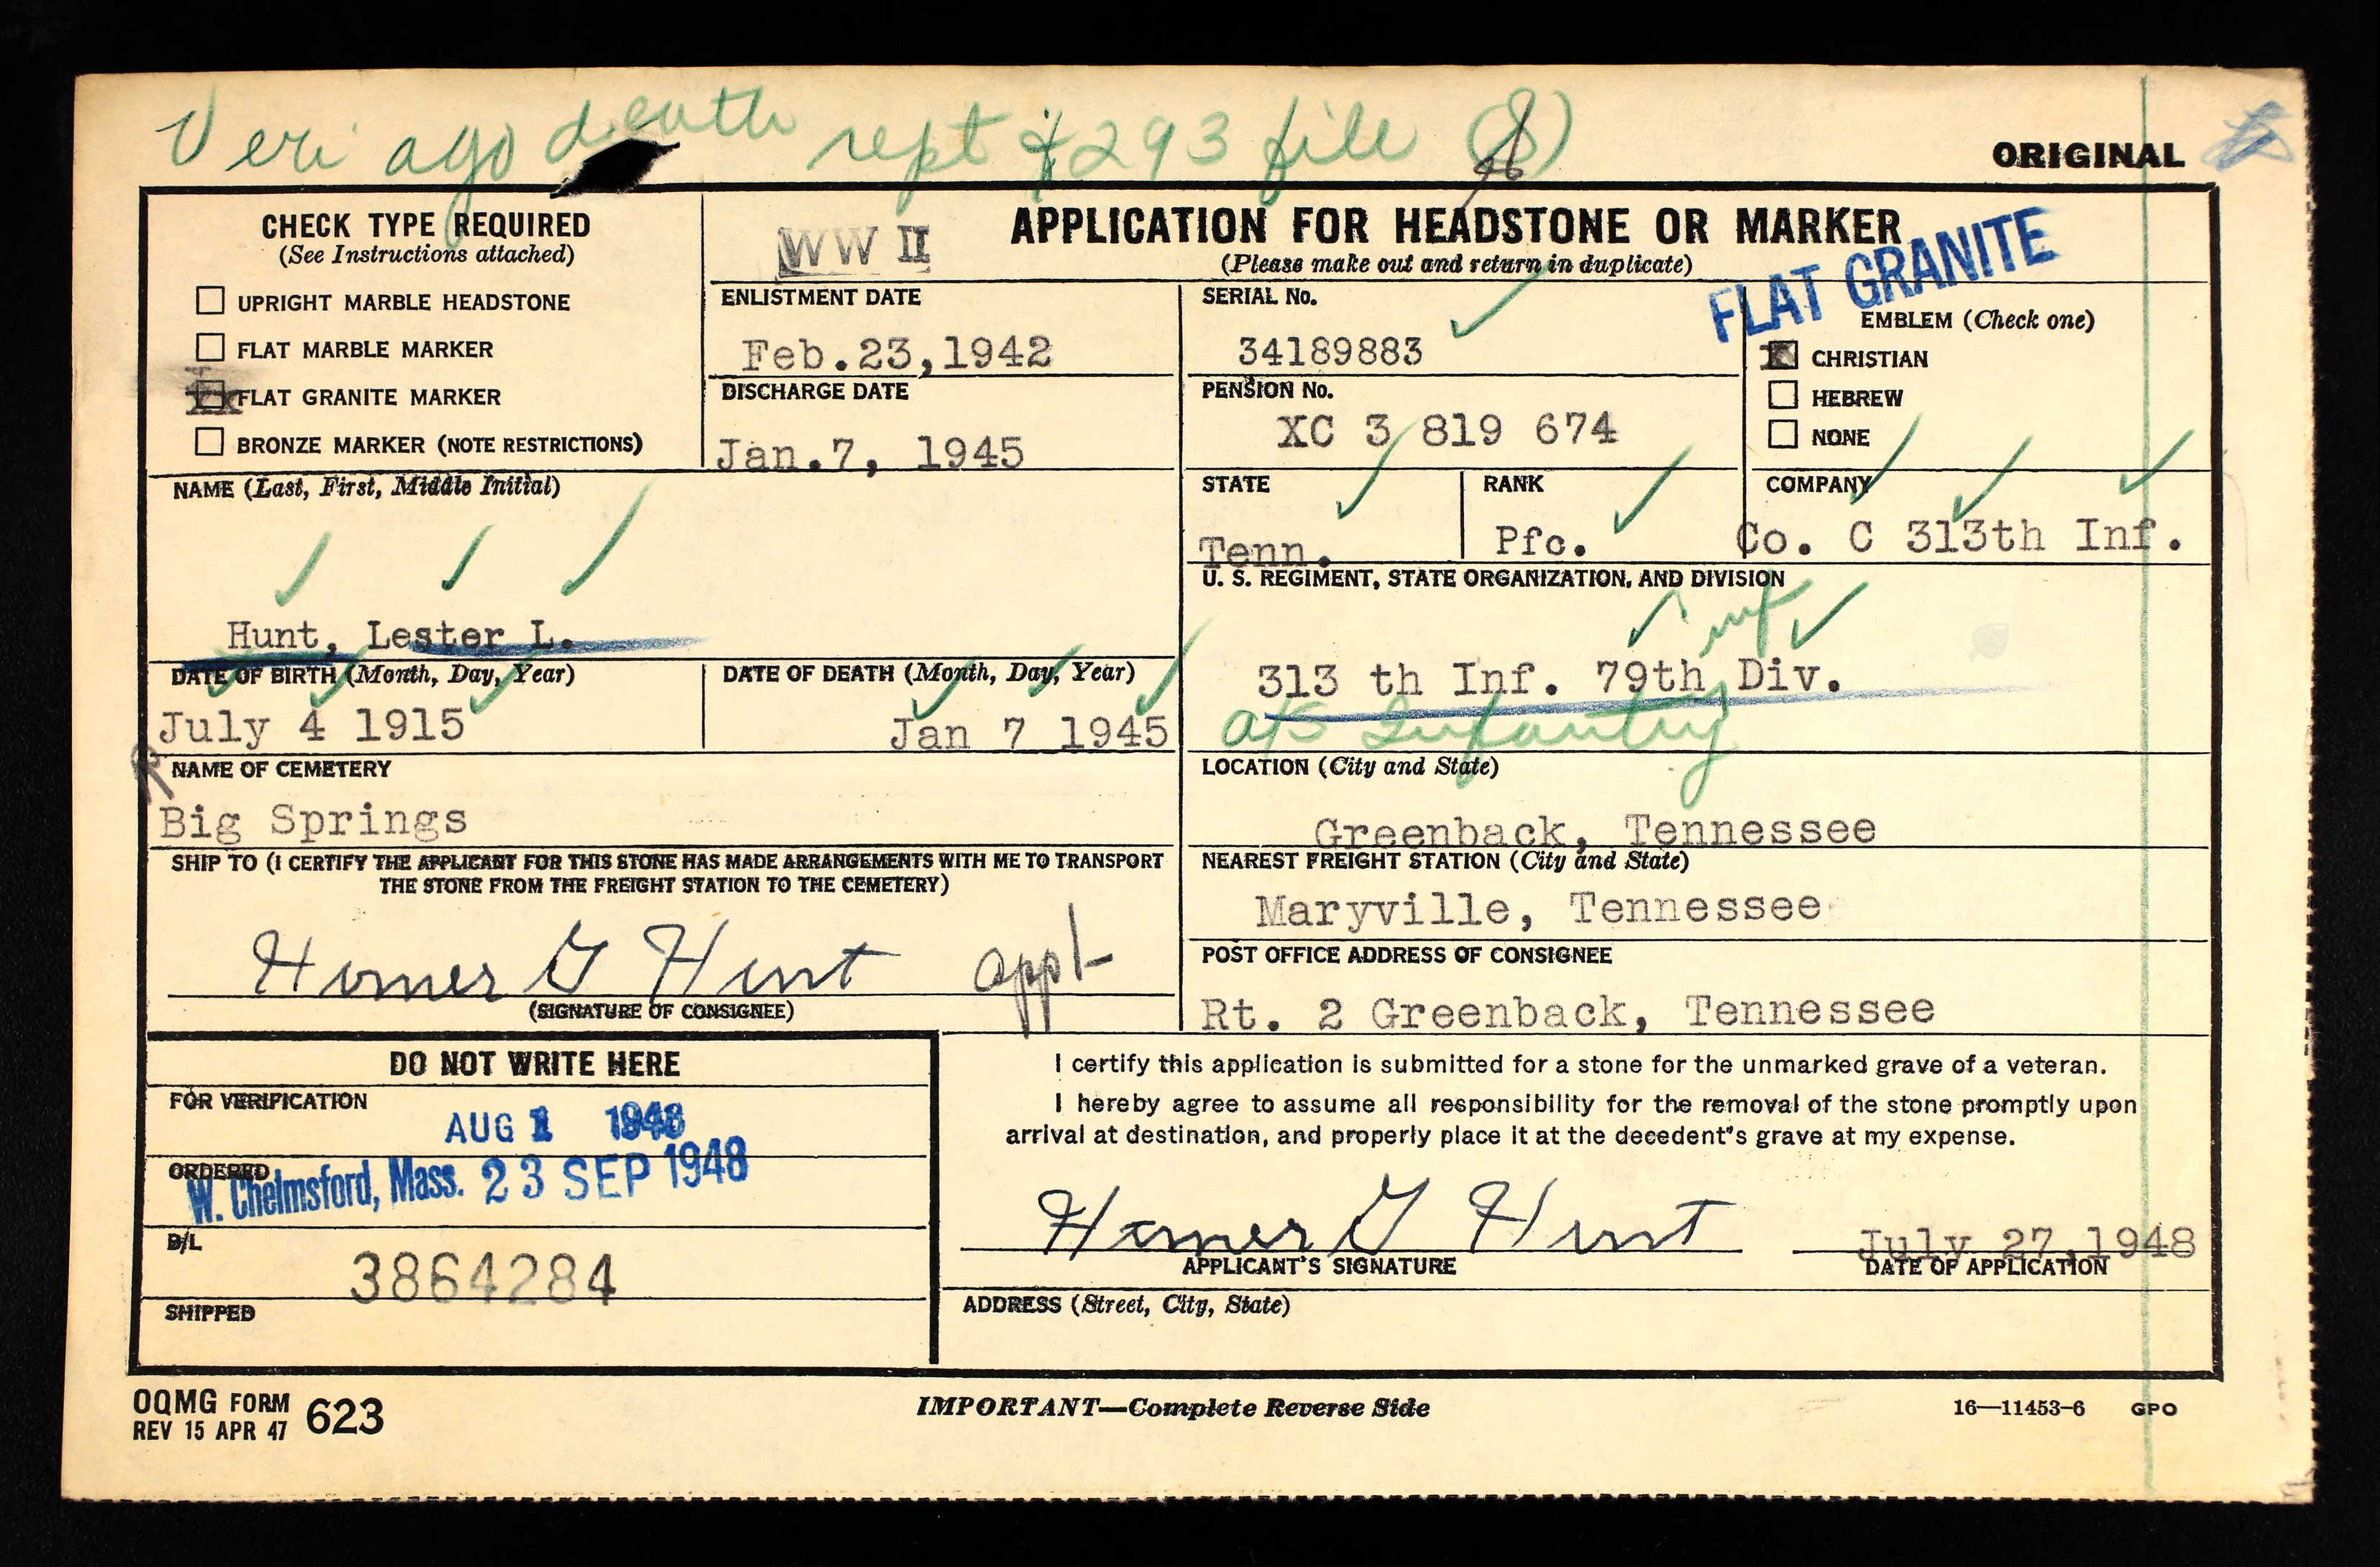 Veri ago death rept & 293 file (S)
ORIGINAL
CHECK TYPE REQUIRED
(See Instructions attached)
UPRIGHT MARBLE HEADSTONE
FLAT MARBLE MARKER
FLAT GRANITE MARKER
BRONZE MARKER (NOTE RESTRICTIONS)
WW II
APPLICATION FOR HEADSTONE OR MARKER
(Please make out and return in duplicate)
FLAT GRANITE
ENLISTMENT DATE
Feb.23,1942
DISCHARGE DATE
Jan.7, 1945
SERIAL No.
34189883
PENSION No.
XC 3 819 674
EMBLEM (Check one)
CHRISTIAN
HEBREW
NONE
NAME (Last, First, Middle Initial)
Hunt, Lester L.
STATE
Tenn.
RANK
Pfc.
COMPANY
Co. C 313th Inf.
U. S. REGIMENT, STATE ORGANIZATION, AND DIVISION
inf
313 th Inf. 79th Div.
a/s Infantry
DATE OF BIRTH (Month, Day, Year)
July 4 1915
DATE OF DEATH (Month, Day, Year)
Jan 7 1945
NAME OF CEMETERY
Big Springs
LOCATION (City and State)
Greenback, Tennessee
SHIP TO (I CERTIFY THE APPLICANT FOR THIS STONE HAS MADE ARRANGEMENTS WITH ME TO TRANSPORT
THE STONE FROM THE FREIGHT STATION TO THE CEMETERY)
Homer G Hunt appt
(SIGNATURE OF CONSIGNEE)
NEAREST FREIGHT STATION (City and State)
Maryville, Tennessee
POST OFFICE ADDRESS OF CONSIGNEE
Rt. 2 Greenback, Tennessee
DO NOT WRITE HERE
FOR VERIFICATION
AUG 1948
ORDERED
W. Chelmsford, Mass. 23 SEP 1948
B/L
3864284
SHIPPED
I certify this application is submitted for a stone for the unmarked grave of a veteran.
I hereby agree to assume all responsibility for the removal of the stone promptly upon
arrival at destination, and properly place it at the decedent's grave at my expense.
Homer G Hunt
APPLICANT'S SIGNATURE
July 27,1948
DATE OF APPLICATION
ADDRESS (Street, City, State)
OQMG FORM 623
REV 15 APR 47
IMPORTANT—Complete Reverse Side
16—11453-6 GPO